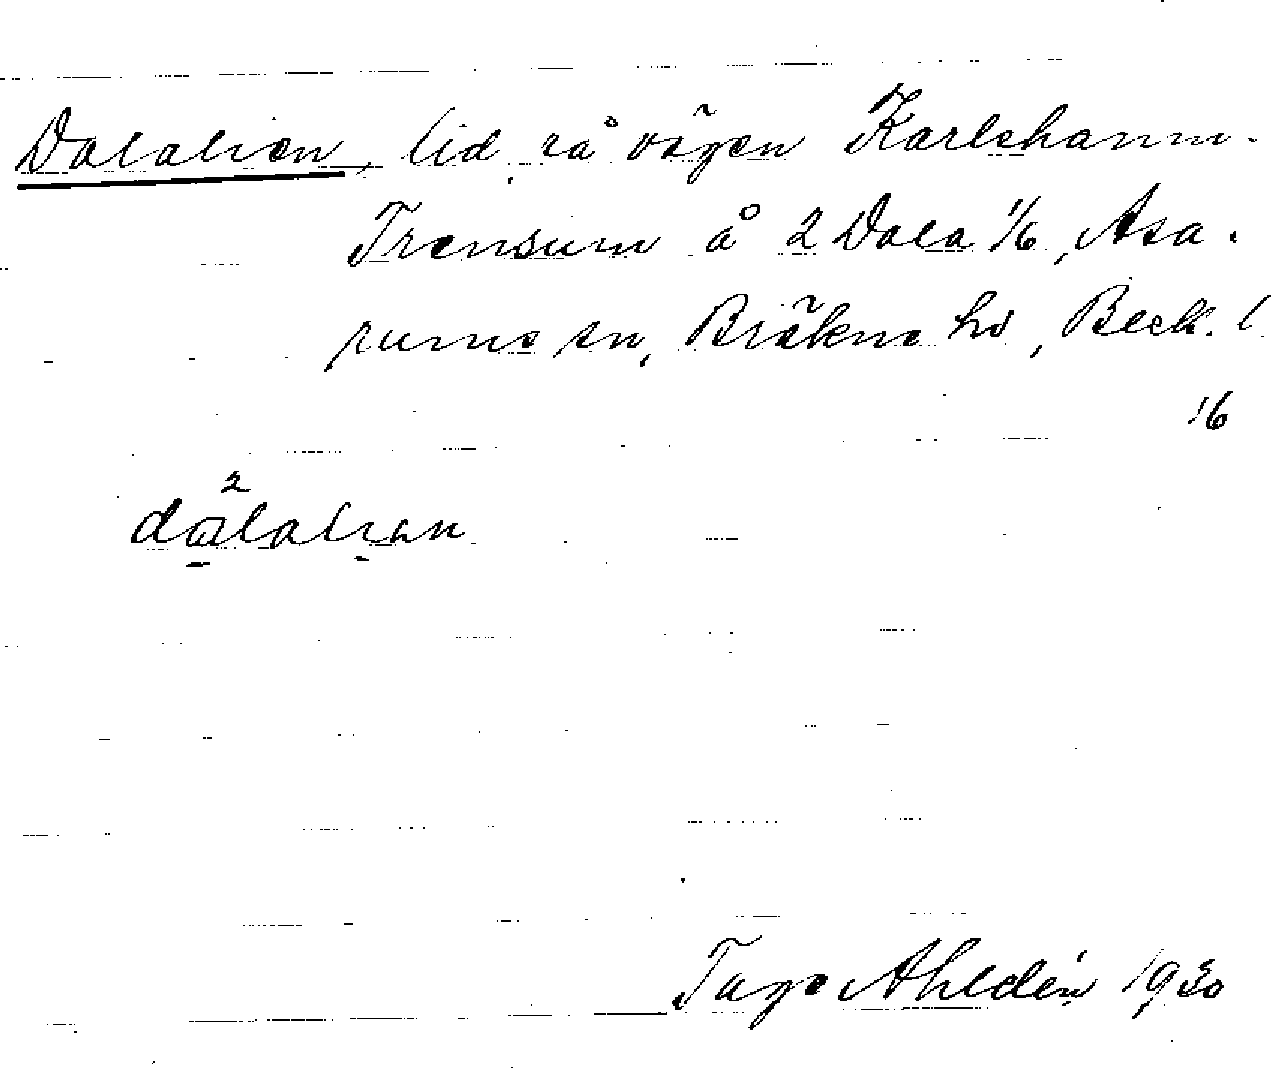 Dalalien, lid på vägen Karlshamn-
Trensum å 2 Dala 1/6, Asa-
rums sn, Bräkne hd, Blek. l
16
2
dalalian
Tage Ahldén 1930